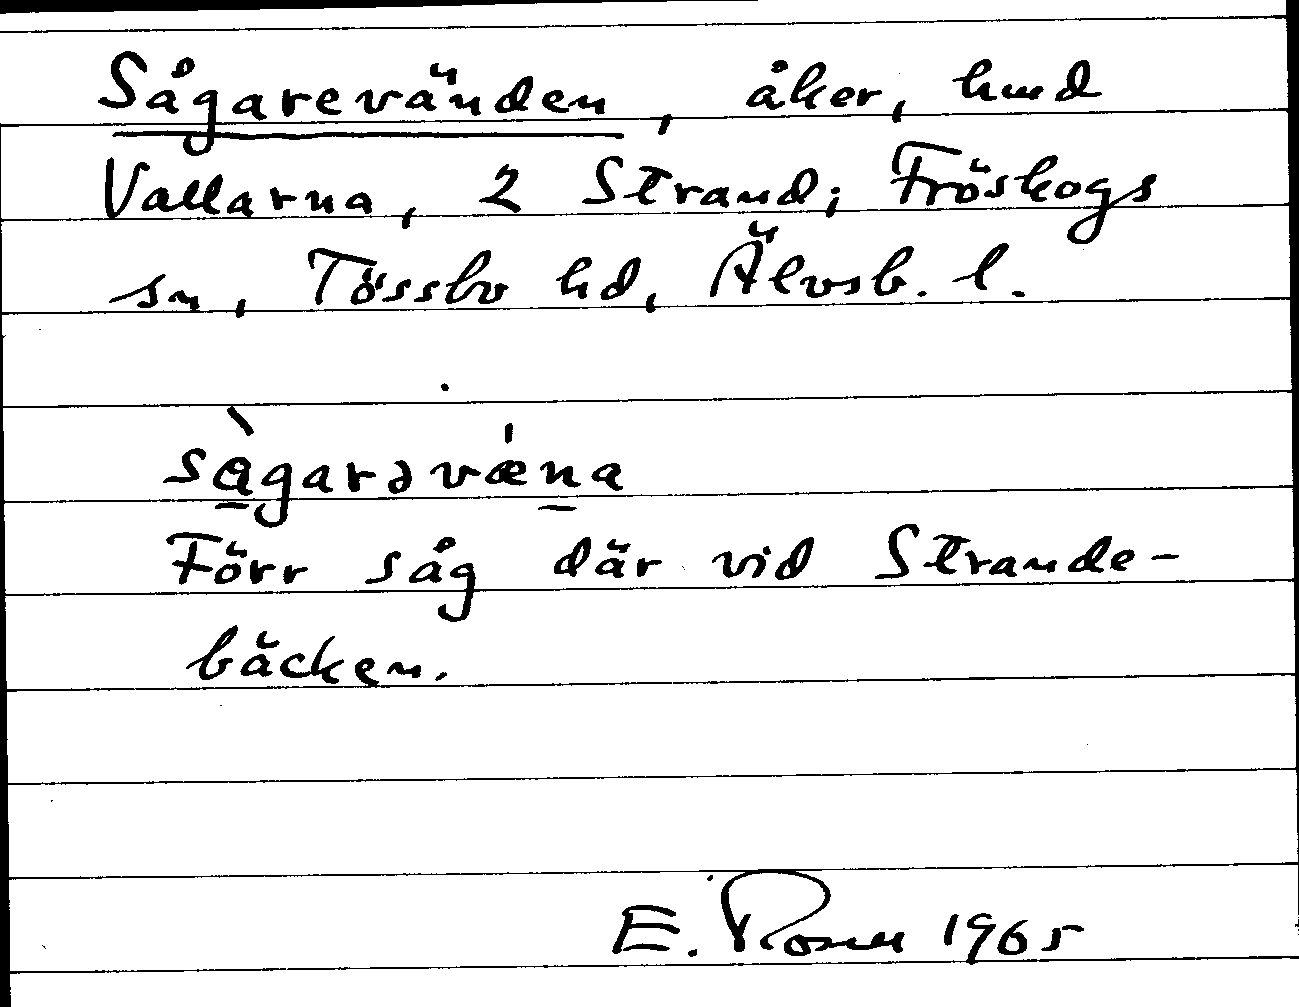 Sågarevänden, åker, hmd
Vallarna, 2 Strand; Fröskogs
sn, Tössbo hd, Älvsb. l.
sàgarəvæ̍na
Förr såg där vid Strande-
bäcken.
E. Rosell 1965